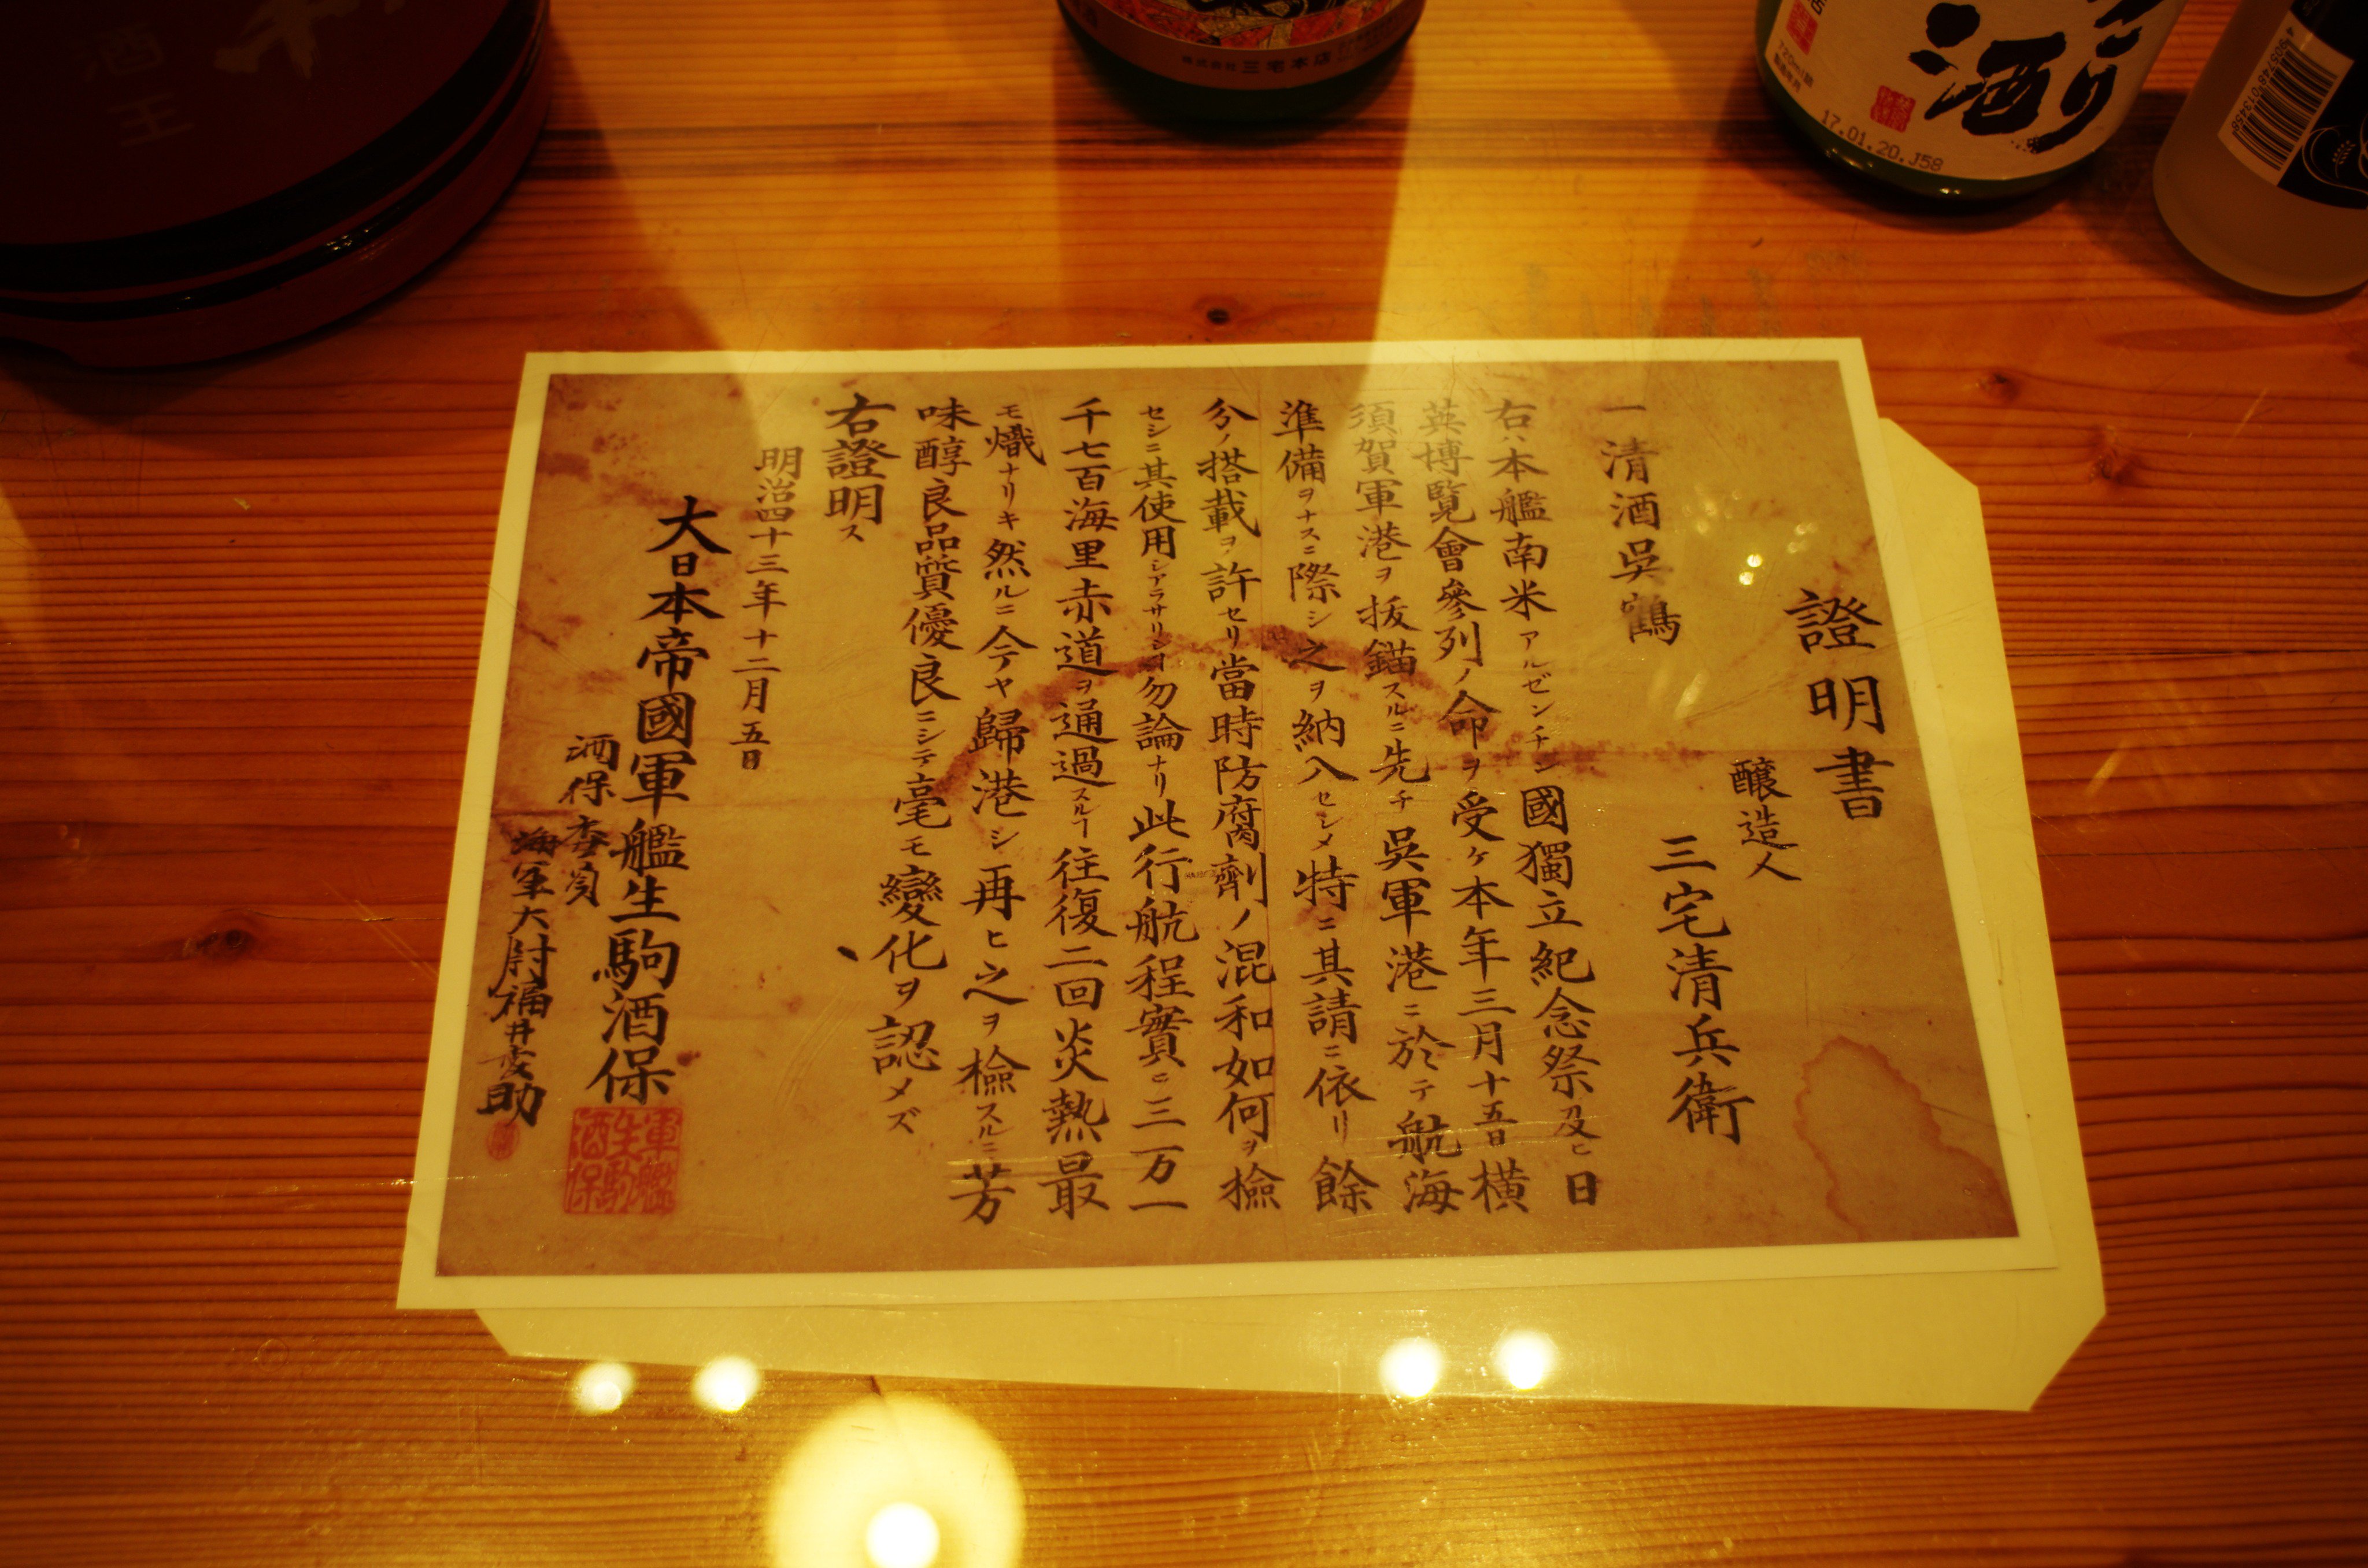 證明書
醸造人
三宅清兵衛
一清酒呉鶴
右ハ本艦南米アルゼンチン國獨立紀念祭及ヒ日
英博覧會參列ノ命ヲ受ケ本年三月十五日横
須賀軍港ヲ抜錨スルニ先チ呉軍港ニ於テ航海
準備ヲナスニ際シ之ヲ納入セシメ特ニ其請ニ依リ餘
分ノ搭載ヲ許セリ當時防腐劑ノ混和如何ヲ檢
セシニ其使用シアラサリシヿ勿論ナリ此行航程實ニ三万一
千七百海里赤道ヲ通過スルヿ往復二回炎熱最
モ熾ナリキ然ルニ今ヤ歸港シ再ヒ之ヲ檢スルニ芳
味醇良品質優良ニシテ毫モ變化ヲ認メズ
右證明ス
明治四十三年十二月五日
大日本帝國軍艦生駒酒保
酒保委員
海軍大尉福井助
軍艦
生駒
酒保
酒
王
株式会社三宅本店
ごり
酒
720ml詰
17.01.20.J58
4905748013458